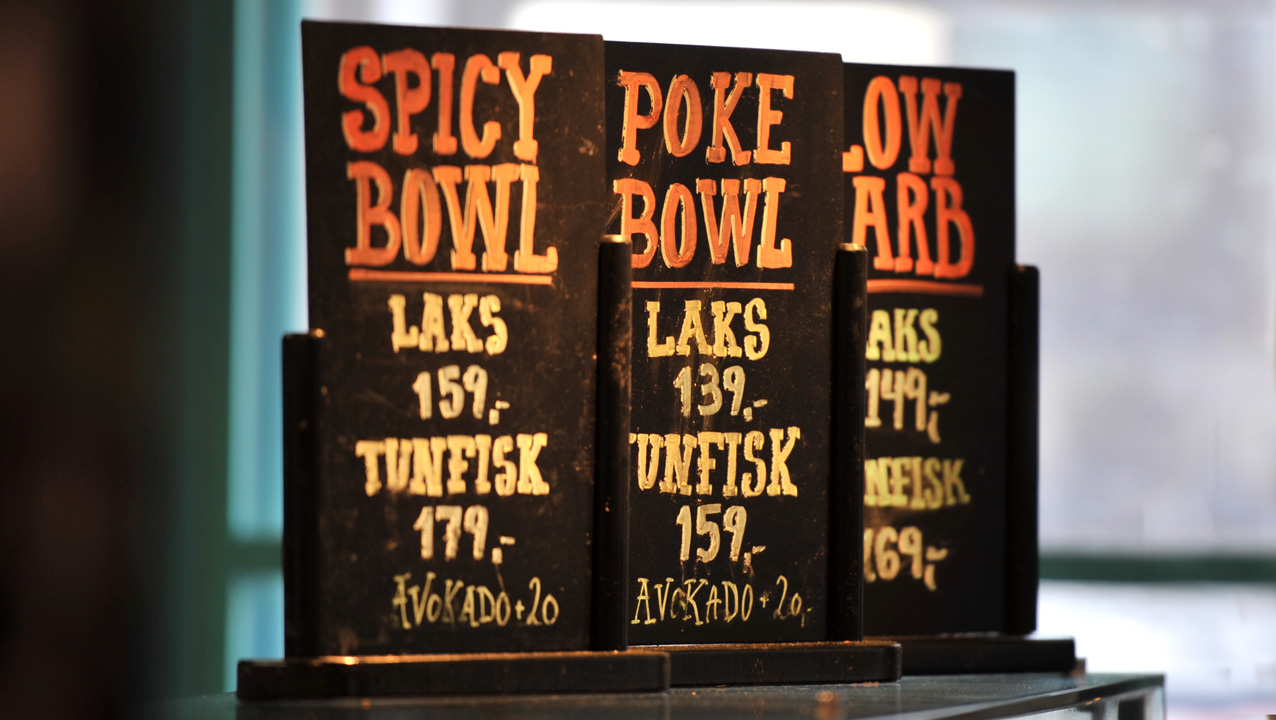 SPICY
BOWL
LAKS
159,-
TUNFISK
179,-
AVOKADO+20
POKE
BOWL
LAKS
139,-
TUNFISK
159,-
AVOKADO+20,-
LOW
ARB
AKS
149,-
NFISK
169,-